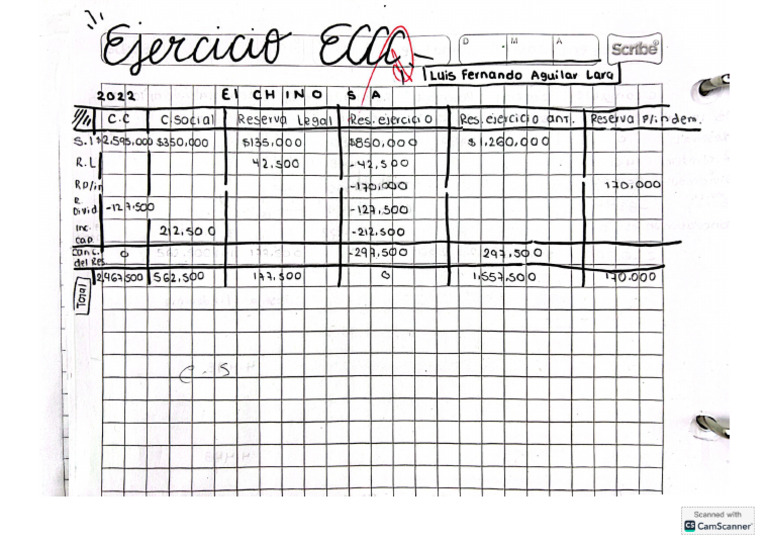 Ejercicio ECCC
D M A
Scribe
Luis Fernando Aguilar Lara
2022 El CHINO S A
C.C C.Social Reserva Legal Res. ejercicio Res. ejercicio ant. Reserva p/indem.
S.I $2,595,000 $350,000 $135,000 $850,000 $1,260,000
R.L 42,500 -42,500
R p/in -170,000 170,000
R. Divid -127,500 -127,500
Inc. cap 212,500 -212,500
Canc. del Res 0 -297,500 297,500
Total 2,467,500 562,500 177,500 0 1,557,500 170.000
C-S
Scanned with
CS CamScanner